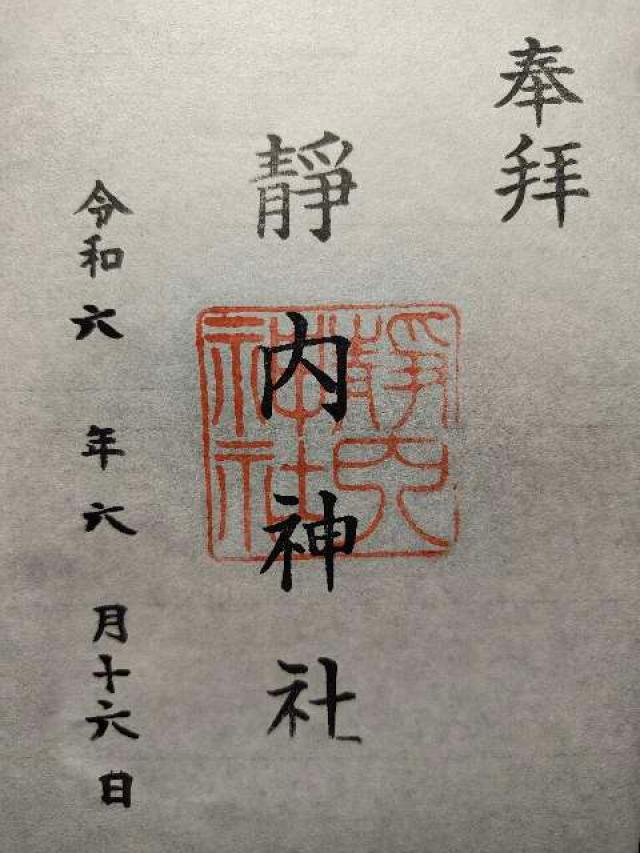 奉拝
靜内神社
靜内神社
令和六年六月十六日